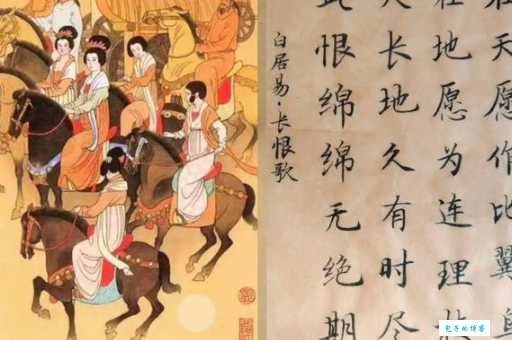 在天愿作比翼鸟
在地愿为连理枝
天长地久有时尽
此恨绵绵无绝期
白居易·长恨歌
包子的博客